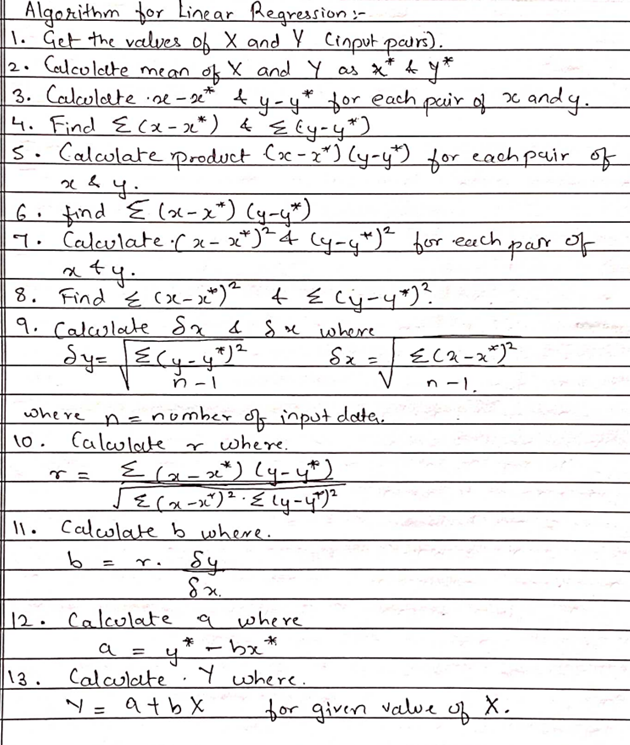 Algorithm for Linear Regression:-
1. Get the values of X and Y (input pairs).
2. Calculate mean of X and Y as x* & y*
3. Calculate x-x* & y-y* for each pair of x and y.
4. Find Σ(x-x*) & Σ(y-y*)
5. Calculate product (x-x*)(y-y*) for each pair of
x & y.
6. find Σ(x-x*)(y-y*)
7. Calculate (x-x*)² & (y-y*)² for each pair of
x & y.
8. Find Σ(x-x*)² & Σ(y-y*)².
9. Calculate δx & δx where
δy = √(Σ(y-y*)² / n-1) δx = √(Σ(x-x*)² / n-1.)
where n = number of input data.
10. Calculate r where.
r = Σ(x-x*)(y-y*) / √(Σ(x-x*)² · Σ(y-y*)²)
11. Calculate b where.
b = r. δy / δx.
12. Calculate a where
a = y* - bx*
13. Calculate . Y where.
Y = a + bX for given value of X.